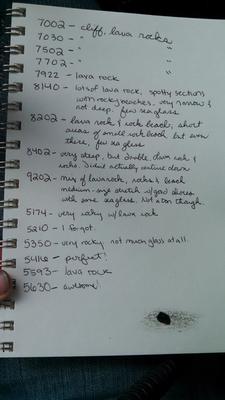 7002 - cliff, lava rocks
7030 - " "
7502 - " "
7702 - " "
7922 - lava rock
8140 - lots of lava rock, spotty sections
w/ rocky beaches, very narrow &
not deep. few sea glass
8202 - lava rock & rock beach, short
areas of small rock beach but even
there, few sea glass
8402 - very steep, but doable. lava rock &
rocks. Didn't actually venture down
9202 - mix of lava rock, rocks & beach
medium-size stretch w/ good access
with some sea glass. Not a ton though.
5174 - very rocky w/ lava rock
5210 - I forgot.
5350 - very rocky. not much glass at all.
5416 - perfect!
5593 - lava rock
5630 - awesome!